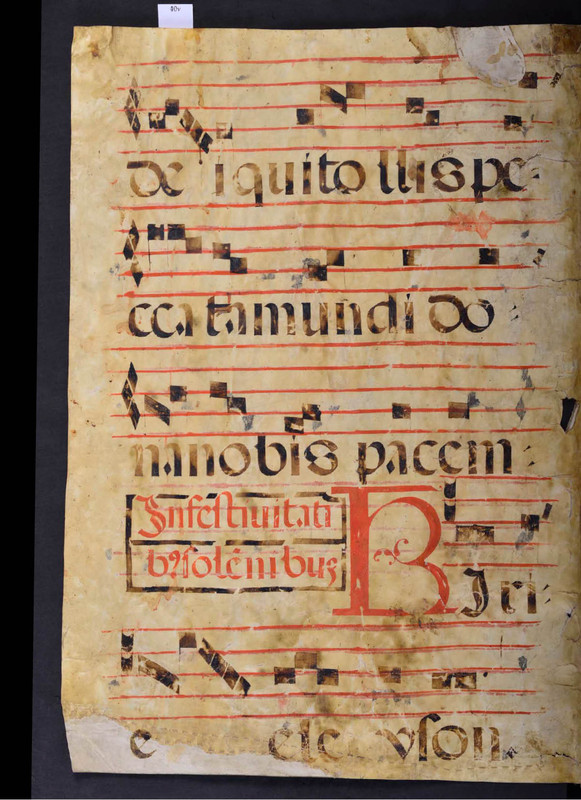 40v
de iquitollispe
ccatamundi do
nanobis pacem
Infestiuitati
bꝰsolēnibuꝫ
K Iri
e eleyson